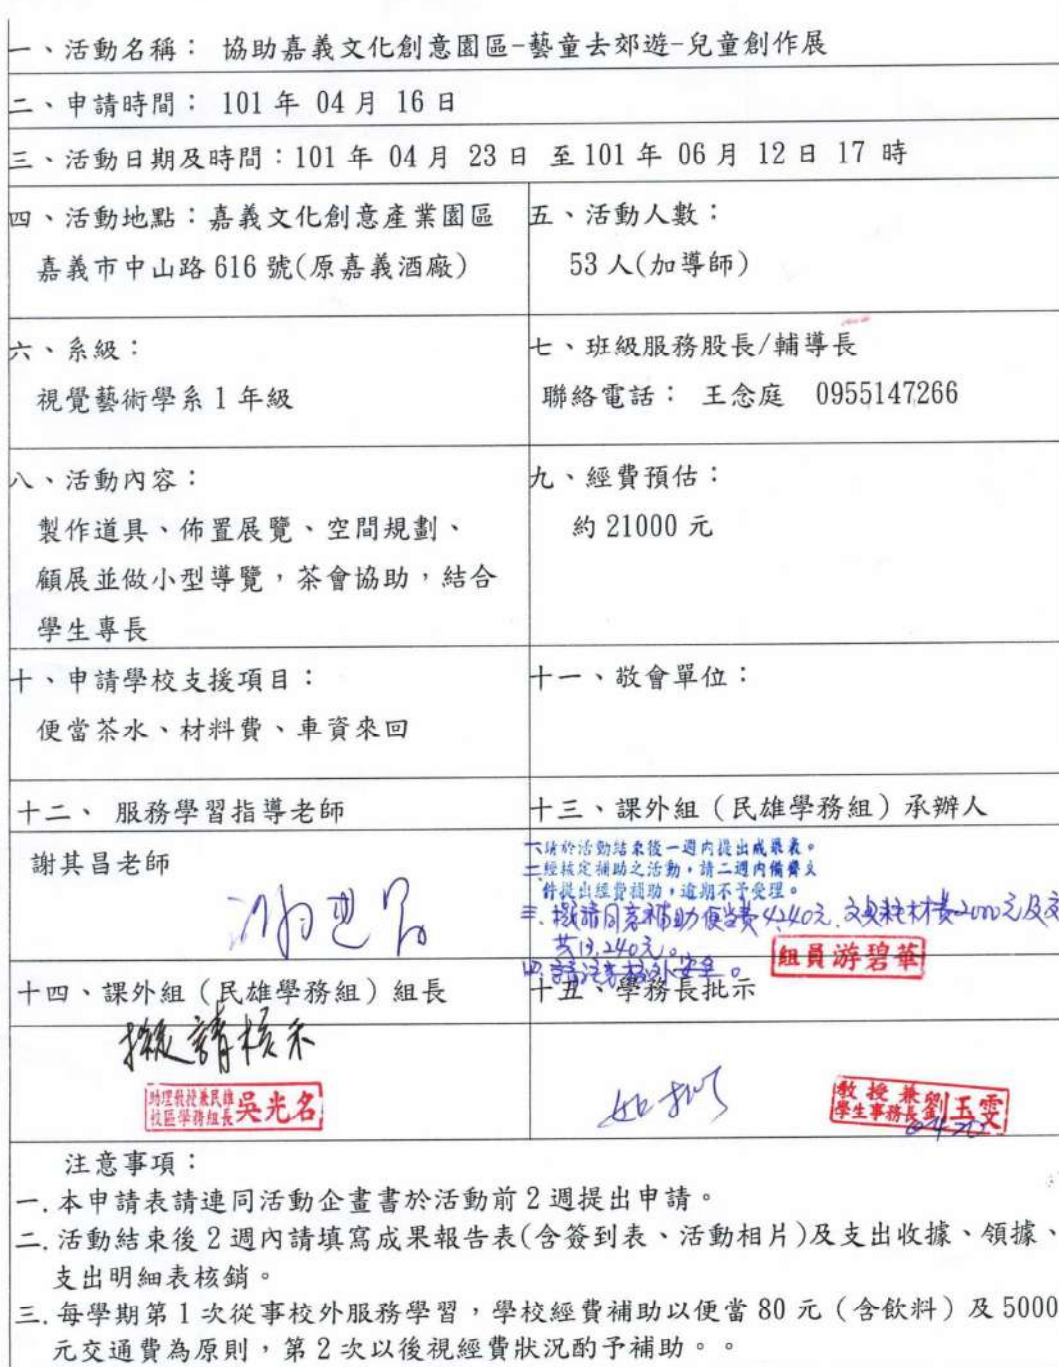 一、活動名稱： 協助嘉義文化創意園區-藝童去郊遊-兒童創作展
二、申請時間： 101 年 04 月 16 日
三、活動日期及時間：101 年 04 月 23 日 至 101 年 06 月 12 日 17 時
四、活動地點：嘉義文化創意產業園區
嘉義市中山路 616 號(原嘉義酒廠)
五、活動人數：
53 人(加導師)
六、系級：
視覺藝術學系 1 年級
七、班級服務股長/輔導長
聯絡電話： 王念庭 0955147266
八、活動內容：
製作道具、佈置展覽、空間規劃、
顧展並做小型導覽，茶會協助，結合
學生專長
九、經費預估：
約 21000 元
十、申請學校支援項目：
便當茶水、材料費、車資來回
十一、敬會單位：
十二、 服務學習指導老師
謝其昌老師
十三、課外組（民雄學務組）承辦人
一、請於活動結束後一週內提出成果表。
二、經核定補助之活動，請二週內備齊文
件提出經費補助，逾期不予受理。
三、擬請同意補助便當費4240元、文具耗材費2000元及交
共13,240元。
四、請注意校外安全。
組員游碧華
十四、課外組（民雄學務組）組長
擬請核示
助理教授兼民雄
校區學務組長 吳光名
十五、學務長批示
如擬
教授兼
學生事務長 劉玉雯
注意事項：
一. 本申請表請連同活動企畫書於活動前 2 週提出申請。
二. 活動結束後 2 週內請填寫成果報告表(含簽到表、活動相片)及支出收據、領據、
支出明細表核銷。
三. 每學期第 1 次從事校外服務學習，學校經費補助以便當 80 元（含飲料）及 5000
元交通費為原則，第 2 次以後視經費狀況酌予補助。。